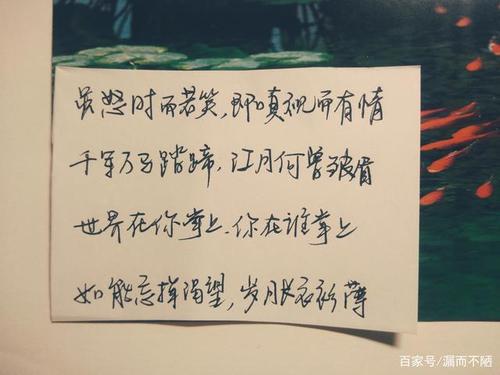 虽怒时而若笑，即嗔视而有情
千军万马踏蹄，江月何曾皱眉
世界在你掌上，你在谁掌上
如能忘掉渴望，岁月长衣衫薄
百家号/漏而不陋